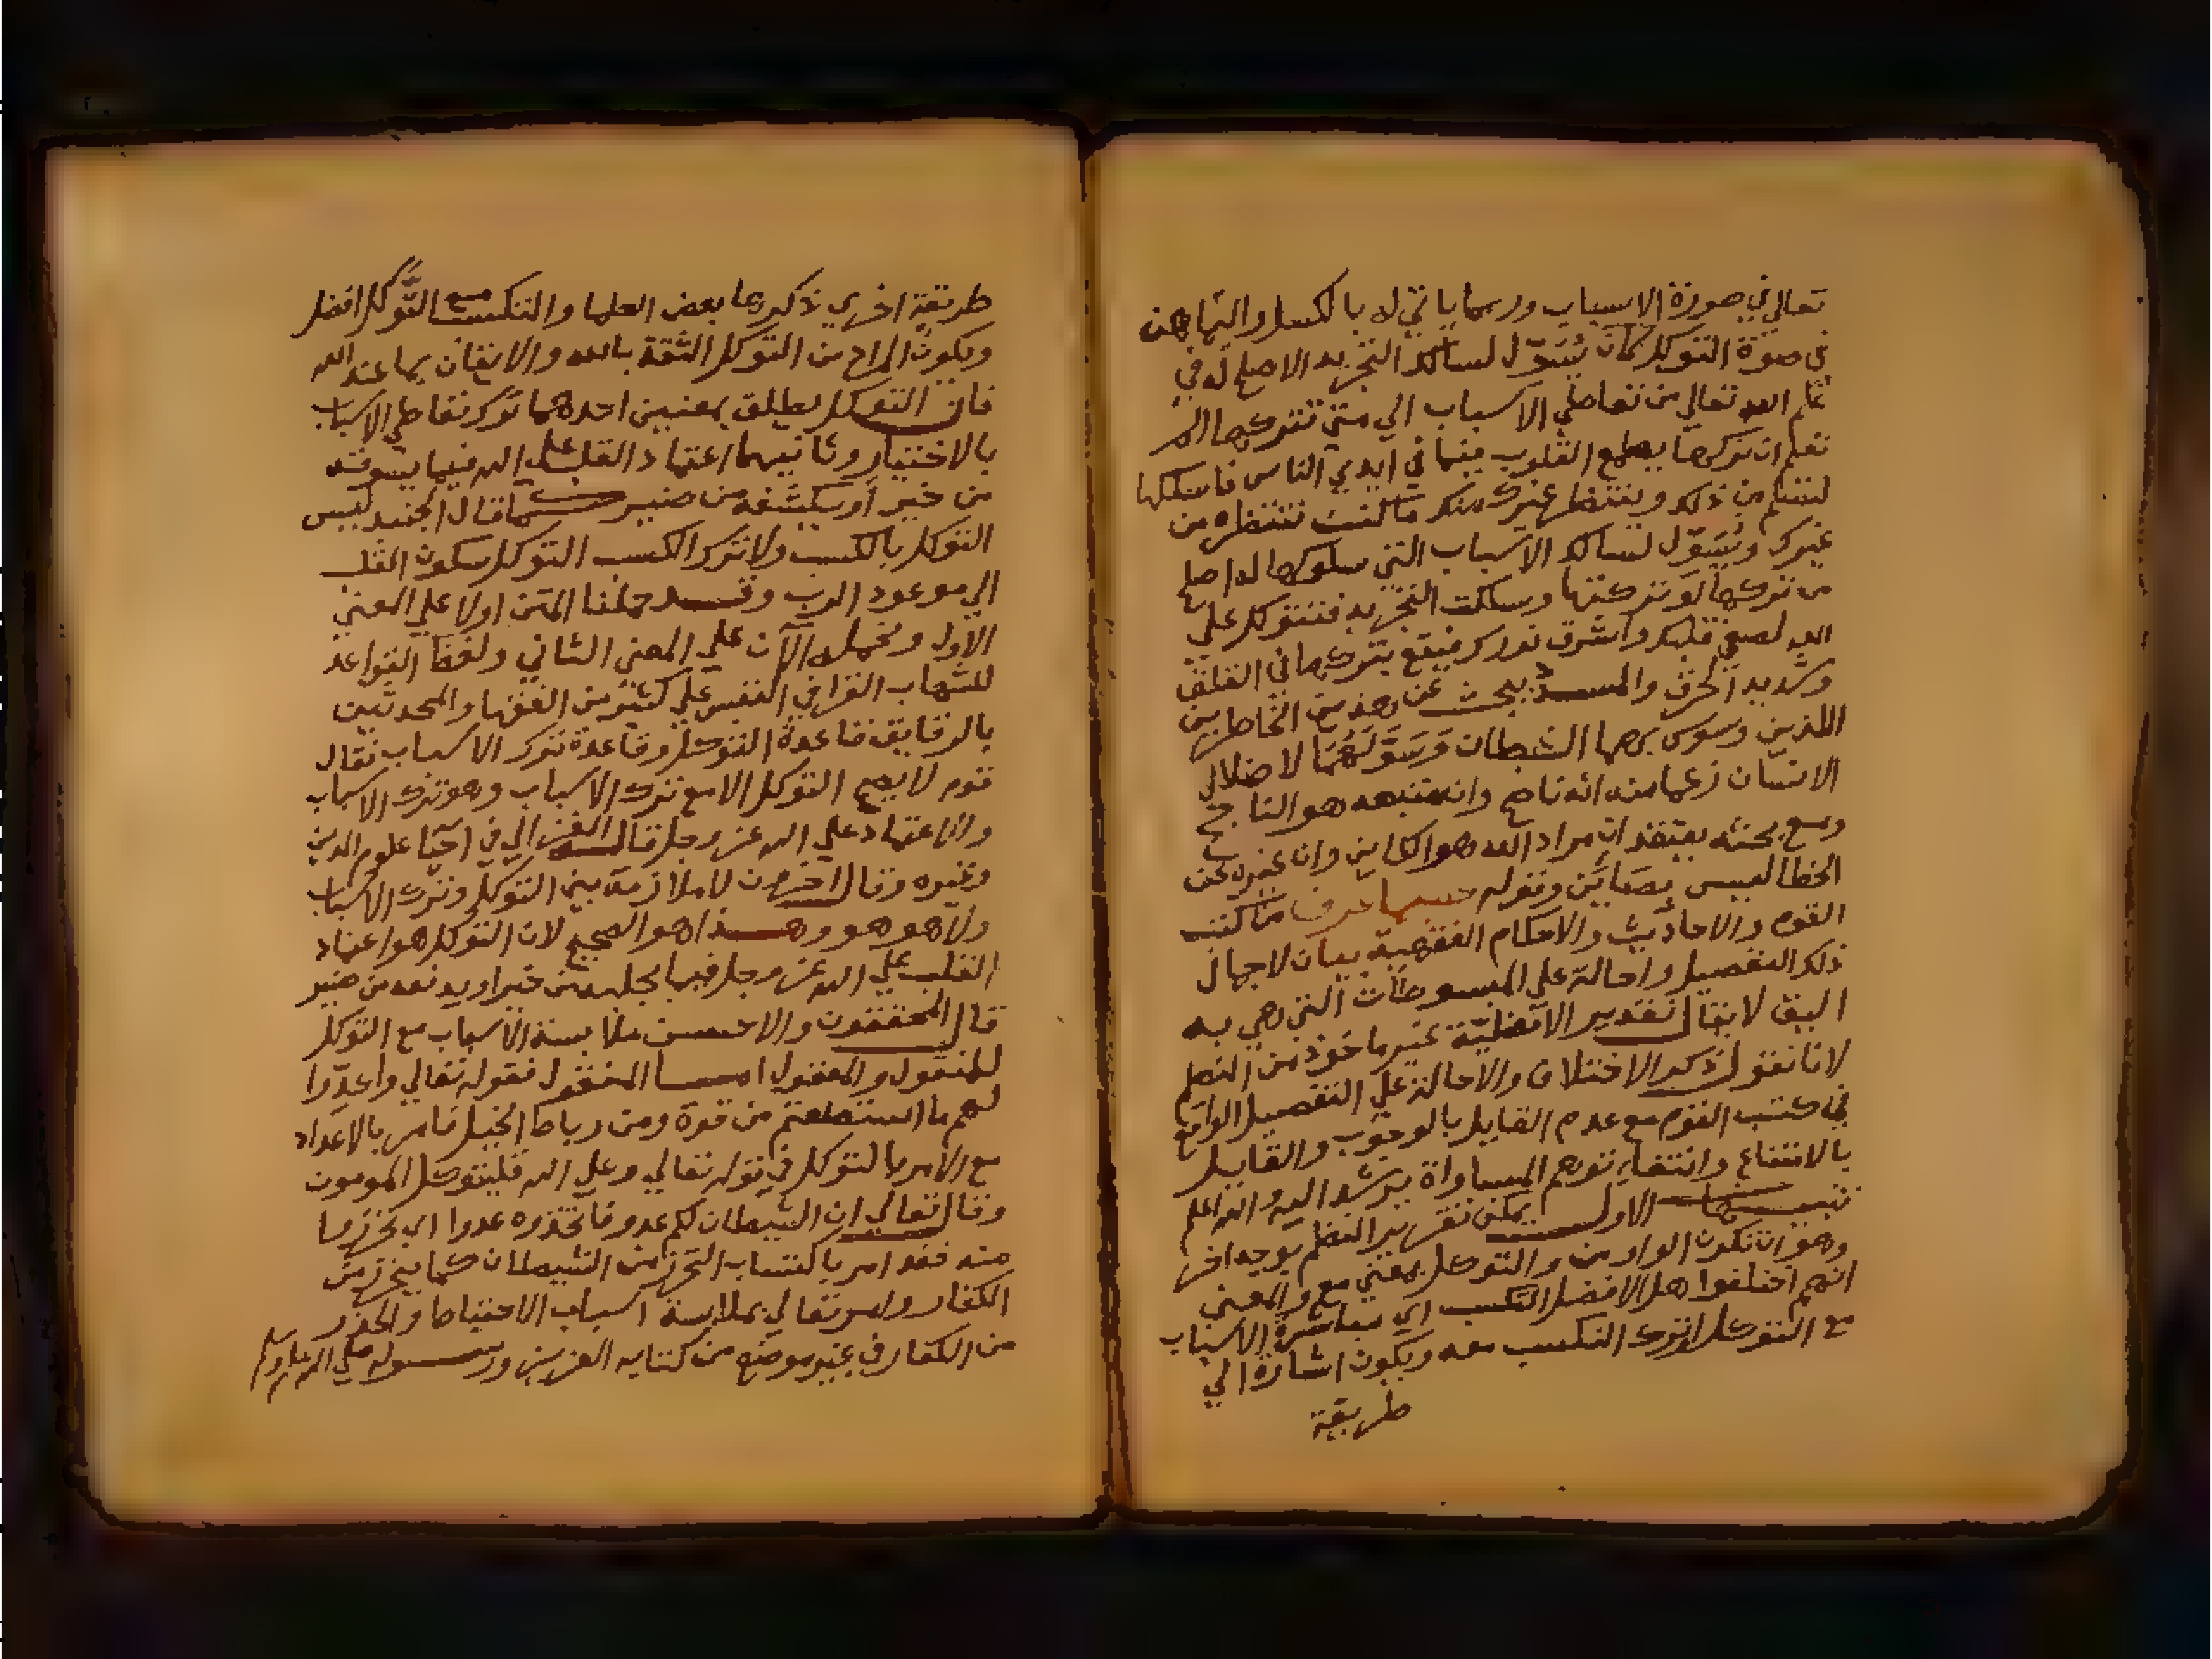 تعالي في صورة الاسباب وربما ياتي له بالكسل والتهاون
في صورة التوكل كان يسول لسالك التجريد الاصلح له في
علم الله تعالي من تعاطي الاسباب الي متي تتركها الم
تعلم ان تركها يطمع القلوب فيما في ايدي الناس فاسلكها
لتسلم من ذلك وينتظر غيرك منك ما كنت تنتظره من
غيرك ويسول لسالك الاسباب التي سلوكها له اصلح
من تركها لو تركتها وسلكت التجريد فتتوكل علي
الله لصفي قلبك واشرق نورك فيقع بتركها في القلق
وشديد الحرق والمسدد يبحث عن هذين الخاطرين
اللذين وسوس بهما الشيطان وسولهما لاضلال
الانسان زعما منه انه ناصح وان متبعه هو الناجح
ومع بحثه يعتقد ان مراد الله هو الكاين وان غيره عن
الخطا ليس بصاين وقوله حسبما عرف من كتب
القوم والاحاديث والاحكام الفقهية بيان لاجمال
ذلك التفصيل واحالة علي المبسوطات التي هي به
اليق لا يقال تقدير الافضلية غير ماخوذ من النظم
لانا نقول ذكر الاختلاف والاحالة علي التفصيل الواقع
في كتب القوم مع عدم القايل بالوجوب والقايل
بالامتناع وانتفاء توهم المساواة يرشد اليه والله اعلم
تنبيهات الاول يمكن تقرير النظم بوجه اخر
وهو ان تكون الواو من والتوكل بمعني مع والمعني
انهم اختلفوا هل الافضل التكسب اي مباشرة الاسباب
مع التوكل او ترك التكسب معه ويكون اشارة الي
طريقة
طريقة اخري ذكرها بعض العلما والتكسب مع التوكل افضل
ويكون المراد من التوكل الثقة بالله والايقان بما عند الله
فان التوكل يطلق بمعنيين احدهما ترك تعاطي الاسباب
بالاختيار وثانيهما اعتماد القلب علي الله فيما يسوقه
من خير او يكشفه من ضير كما قال الجنيد ليس
التوكل بالكسب ولا ترك الكسب التوكل سكون القلب
الي موعود الرب وقد حملنا المتن اولا علي المعني
الاول ونحمله الآن علي المعني الثاني ولفظ القواعد
للشهاب القرافي التبس علي كثير من الفقها والمحدثين
بالرقايق قاعدة التوكل وقاعدة ترك الاسباب فقال
قوم لا يصح التوكل الا مع ترك الاسباب وهو ترك الاسباب
والاعتماد علي الله عز وجل قاله الغزالي في احيا علوم الدين
وغيره وقال اخرون لا ملازمة بين التوكل وترك الاسباب
ولا هو هو وهذا هو الصحيح لان التوكل هو اعتماد
القلب علي الله عز وجل فيما يجلبه من خير او يدفعه من ضير
قال المحققون والاحسن ملابسة الاسباب مع التوكل
للمنقول والمعقول اما المنقول فقوله تعالي واعدوا
لهم ما استطعتم من قوة ومن رباط الخيل فامر بالاعداد
مع الامر بالتوكل في قوله تعالي وعلي الله فليتوكل المومنون
وقال تعالي ان الشيطان لكم عدو فاتخذوه عدوا اي تحرزوا
منه فقد امر باكتساب التحرز من الشيطان كما يتحرز من
الكفار وامر تعالي بملابسة اسباب الاحتياط والحذر
من الكفار في غير موضع من كتابه العزيز ورسوله صلي الله عليه وسلم